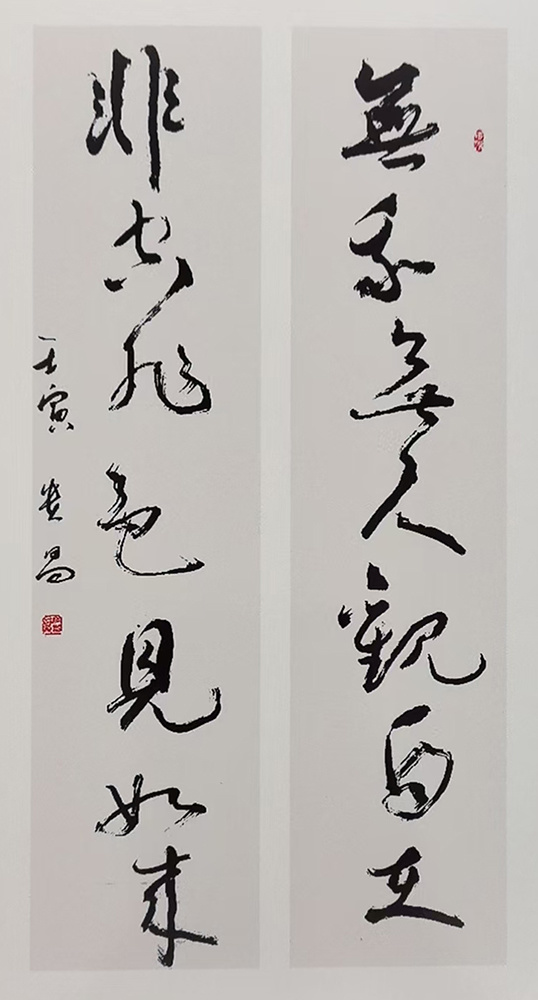 無我無人觀自在
非空非色見如來
壬寅 昌